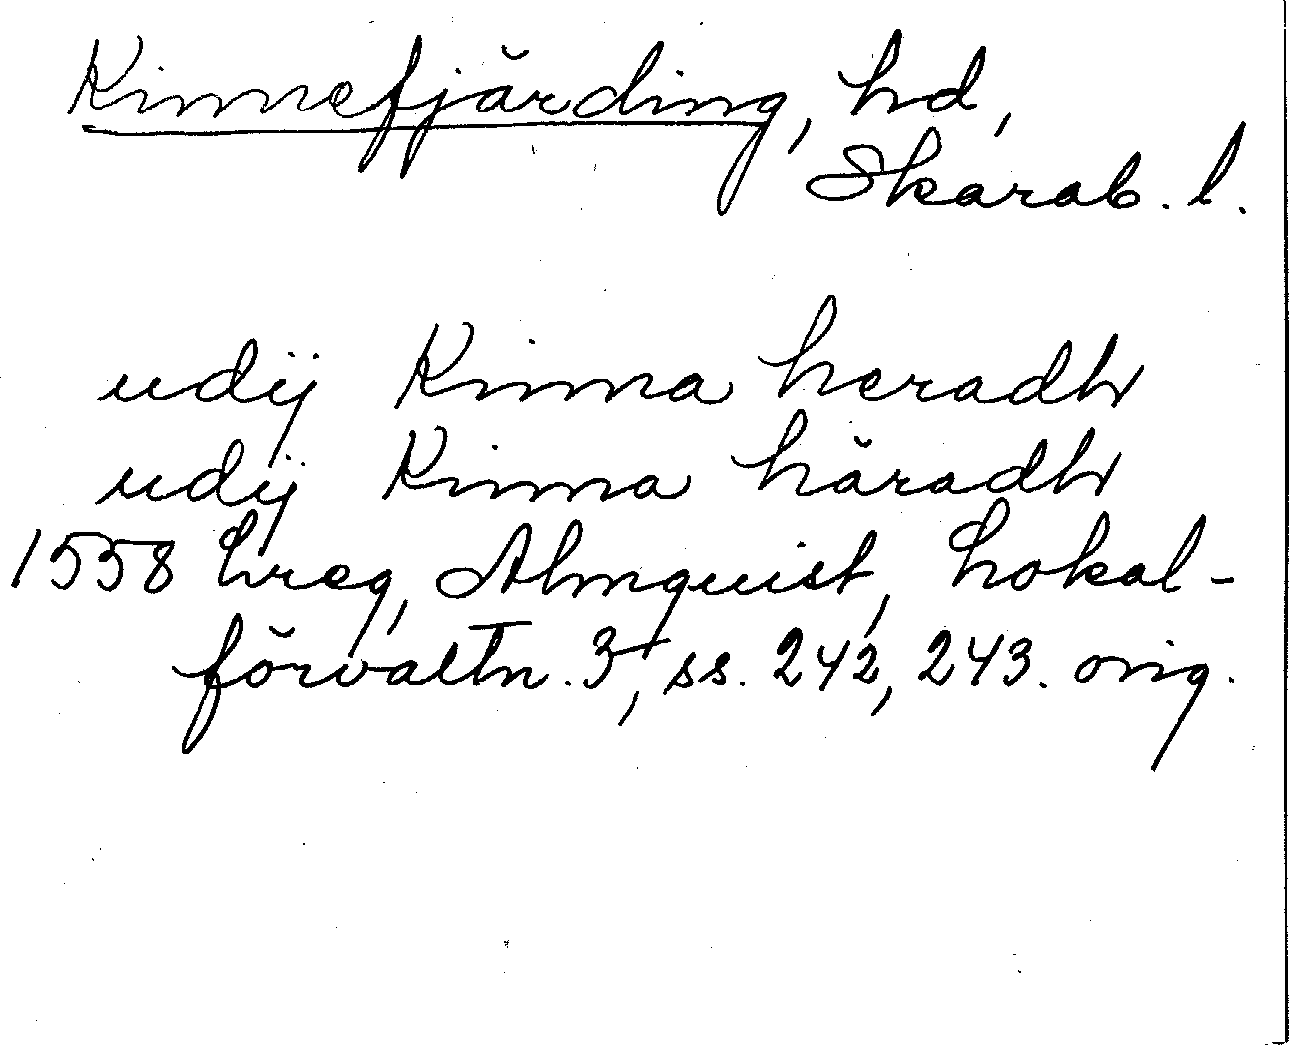 Kinnefjärding, hd,
Skarab. l.
udij Kinna heradh
udij Kinna häradh
1558 Lreg, Almquist, Lokal-
förvaltn. 3, ss. 242, 243. orig.